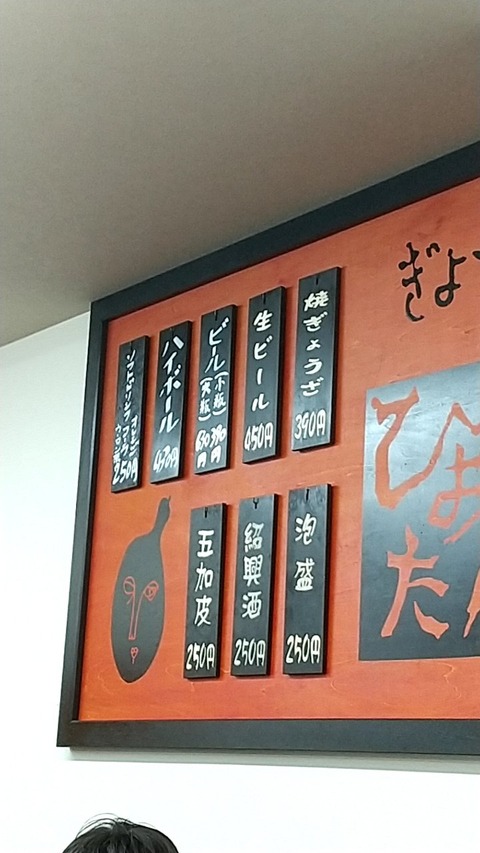 ぎょ
ひょ
た
焼ぎょうざ 390円
生ビール 450円
ビール(小瓶) 390円
(大瓶) 630円
ハイボール 470円
ソフトドリンク
ウーロン茶 250円
泡盛 250円
紹興酒 250円
五加皮 250円